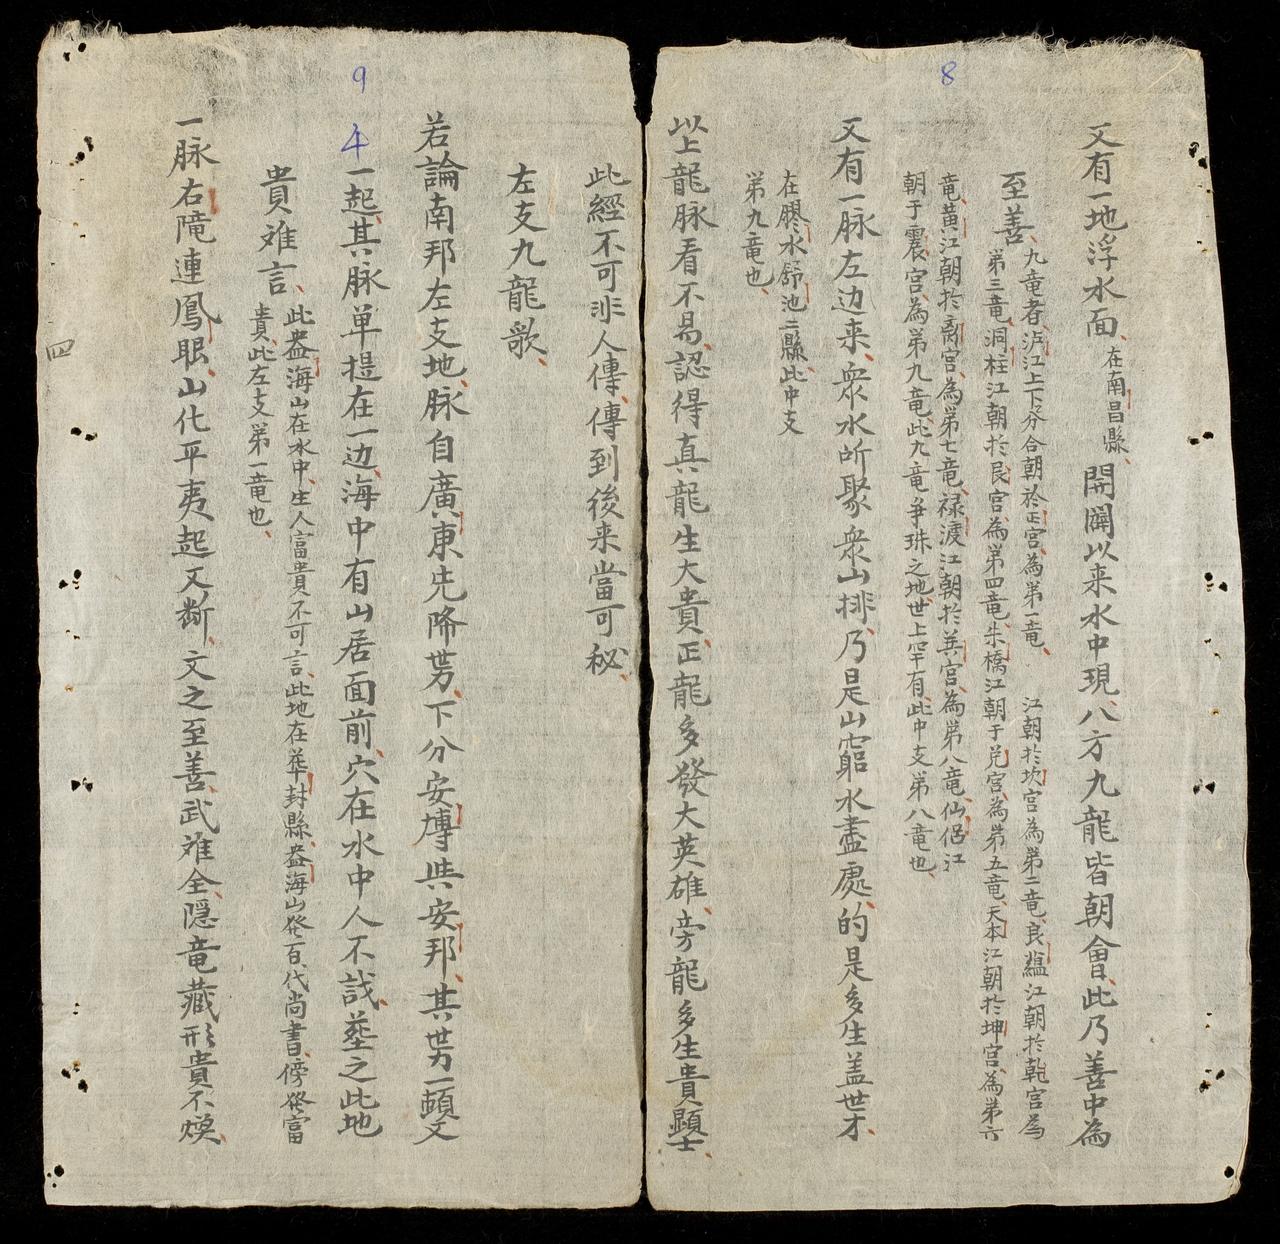 8
又有一地浮水面、在南昌縣、開闢以来水中現、八方九龍皆朝會、此乃善中為
至善、九竜者泸江上下分合朝於正宮、為第一竜、江朝於坎宮為第二竜、良蘊江朝於乾宮為
第三竜、洞柱江朝於艮宮、為第四竜、朱橋江朝于兌宮、為第五竜、天本江朝於坤宮、為第六
竜、黄江朝於离宮、為第七竜、禄渡江朝於巽宮、為第八竜、仙侶江
朝于震宮、為第九竜、此九竜爭珠之地、世上罕有、此中支第八竜也、
又有一脉左边来、衆水所聚衆山排、乃是山窮水盡處、的是多生盖世才、
在膠水舒池二縣、此中支
第九竜也、
以上龍脉看不易、認得真龍生大貴、正龍多發大英雄、旁龍多生貴顯士、
此經不可非人傳、傳到後来當可秘、
左支九龍歌、
9
若論南邦左支地、脉自廣東先降势、下分安博與安邦、其势一頓又
4
一起、其脉单提在一边、海中有山居面前、穴在水中人不識、塟之此地
貴难言、此盎海山在水中、生人富貴不可言、此地在華封縣、盎海山発百代尚書、傍発富
貴、此左支第一竜也、
一脉右隨連鳳眼、山化平夷起又断、文之至善武难全、隱竜藏形貴不煥、
四